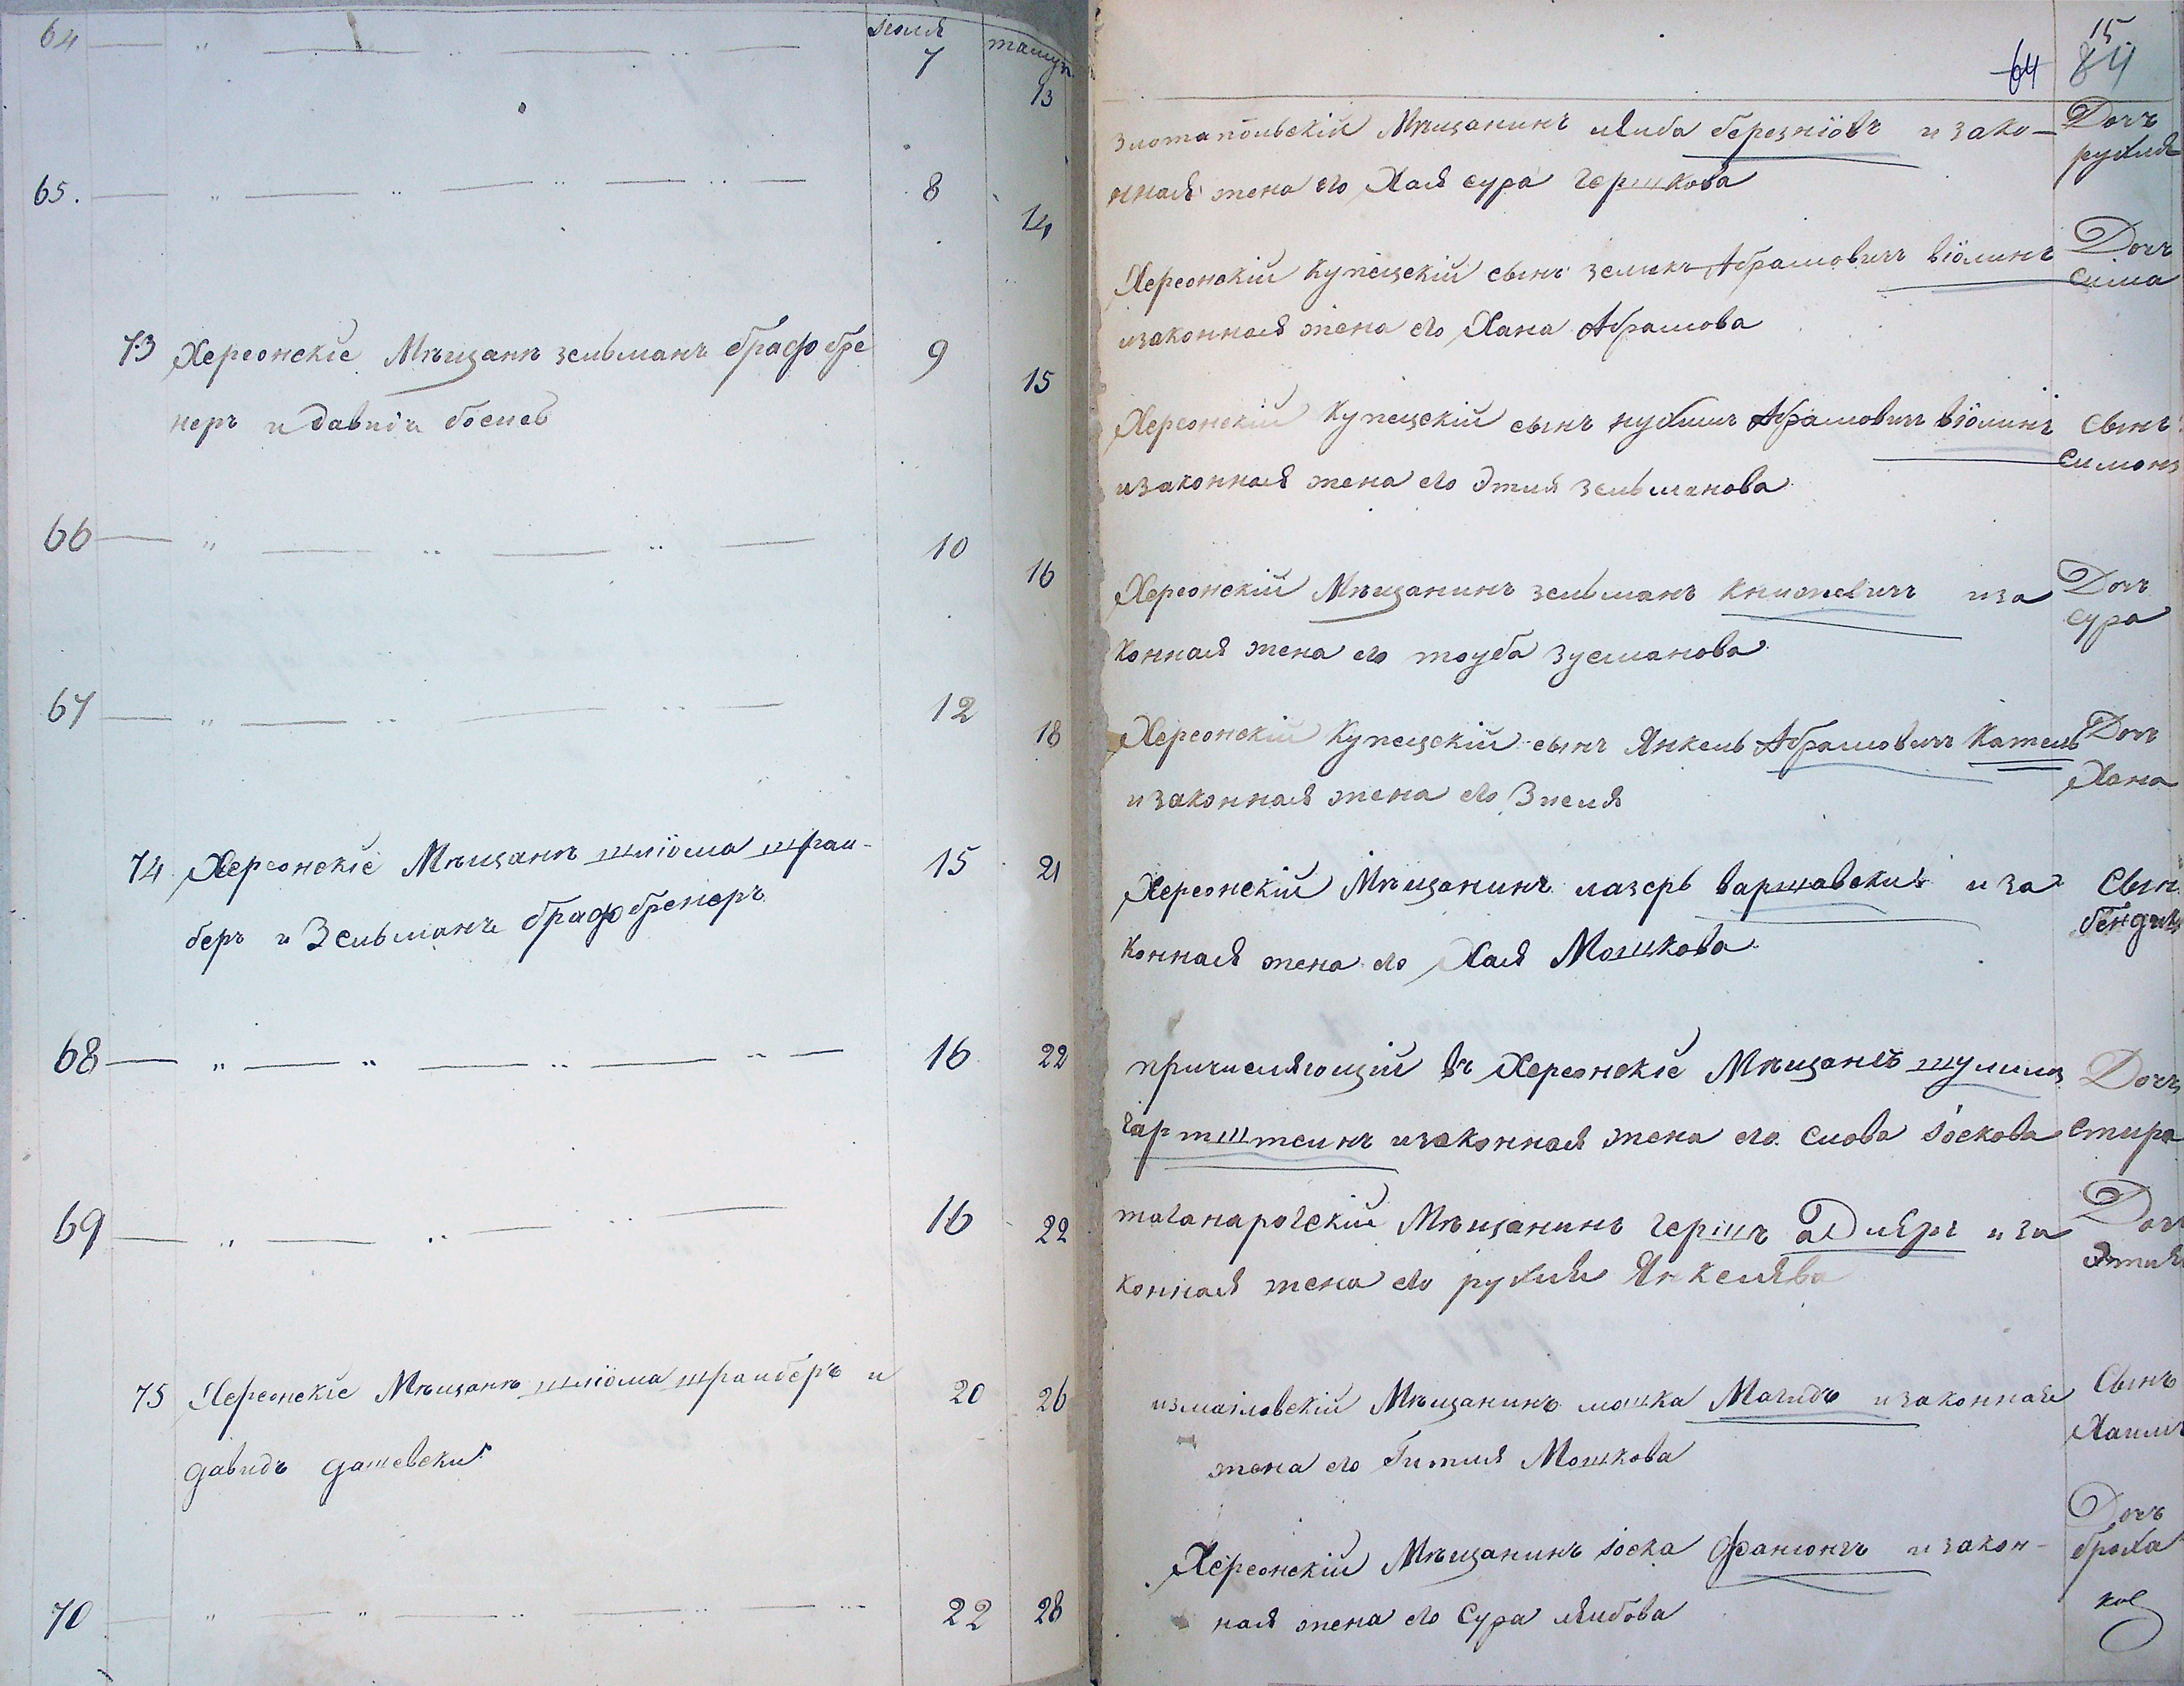 64 — „ — „ — „ —
Іюля
7
тамуз
13
65. — „ — „ — „ — „ —
8
14
73 Херсонскіе Мѣщанѣ зельманъ брафбре
неръ и давидъ
9
15
66 — „ — „ — „ —
10
16
67 — „ — „ — „ —
12
18
74 Херсонскіе Мѣщанѣ шліома шраи-
беръ и Зельманъ брафбренеръ
15
21
68 — „ — „ — „ — „ —
16
22
69 — „ — „ — „ —
16
22
75 Херсонскіе Мѣщанѣ шліома шраиберъ и
давидъ дашевски
20
26
70 — „ — „ — „ — „ —
22
28
64
15
84
златапольскій Мѣщанинъ лейба березніовъ и зако-
нная жена его Хая сура гершкова
Дочъ
рухля
Херсонскій Купецскій сынъ зеликъ Абрамовичъ віолинъ
изаконная жена его Хана Абрамова
Дочъ
сима
Херсонскій Купецскій сынъ нухимъ Абрамовичъ віолинъ
изаконная жена его Этля зельманова
Сынъ
симонъ
Херсонскій Мѣщанинъ зельманъ книжевичъ иза
конная жена его тоуба зусманова
Дочъ
сура
Херсонскій Купецскій сынъ Янкель Абрамовичъ Катель
изаконная жена его Зпеля
Дочъ
Хана
Херсонскій Мѣщанинъ лазерь варшавски и за
конная жена его Хая Мошкова
Сынъ
причисляющій въ Херсонскіе Мѣщане шулимъ
гартштеинъ изаконная жена его слова іоскова
Дочъ
стира
таганарогскій Мѣщанинъ гершъ адлеръ и за
конная жена его рухля Янкелява
Дочъ
Этля
измаіловскій Мѣщанинъ мошка Магидъ изаконная
жена его Гитля Мошкова
Сынъ
Хаимъ
Херсонскій Мѣщанинъ іоска фанзонгъ и закон-
ная жена его Сура леибова
Дочъ
броха